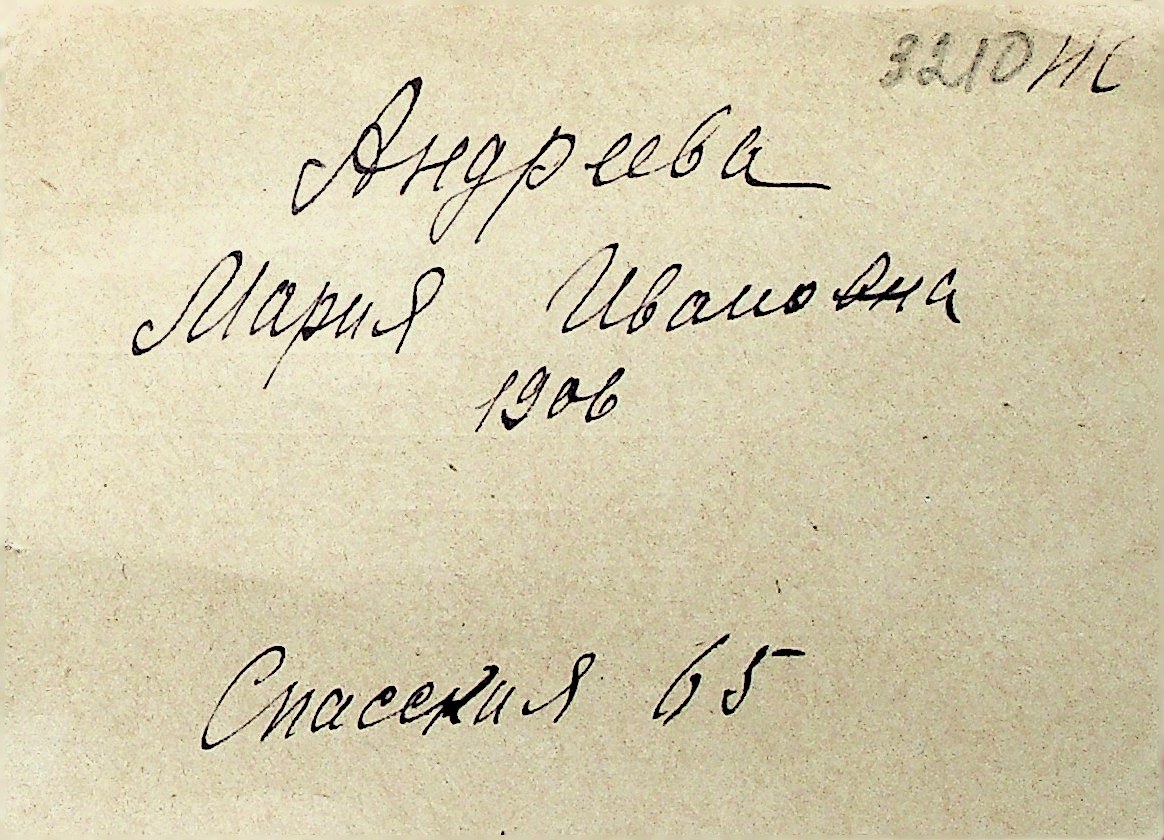 3210 Ж
Андреева
Мария Ивановна
1906
Спасския 65